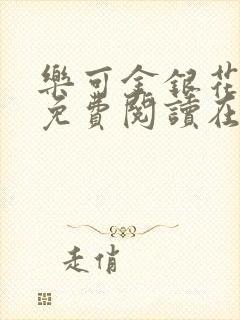 樂可金銀花
免費閱讀在
走俏